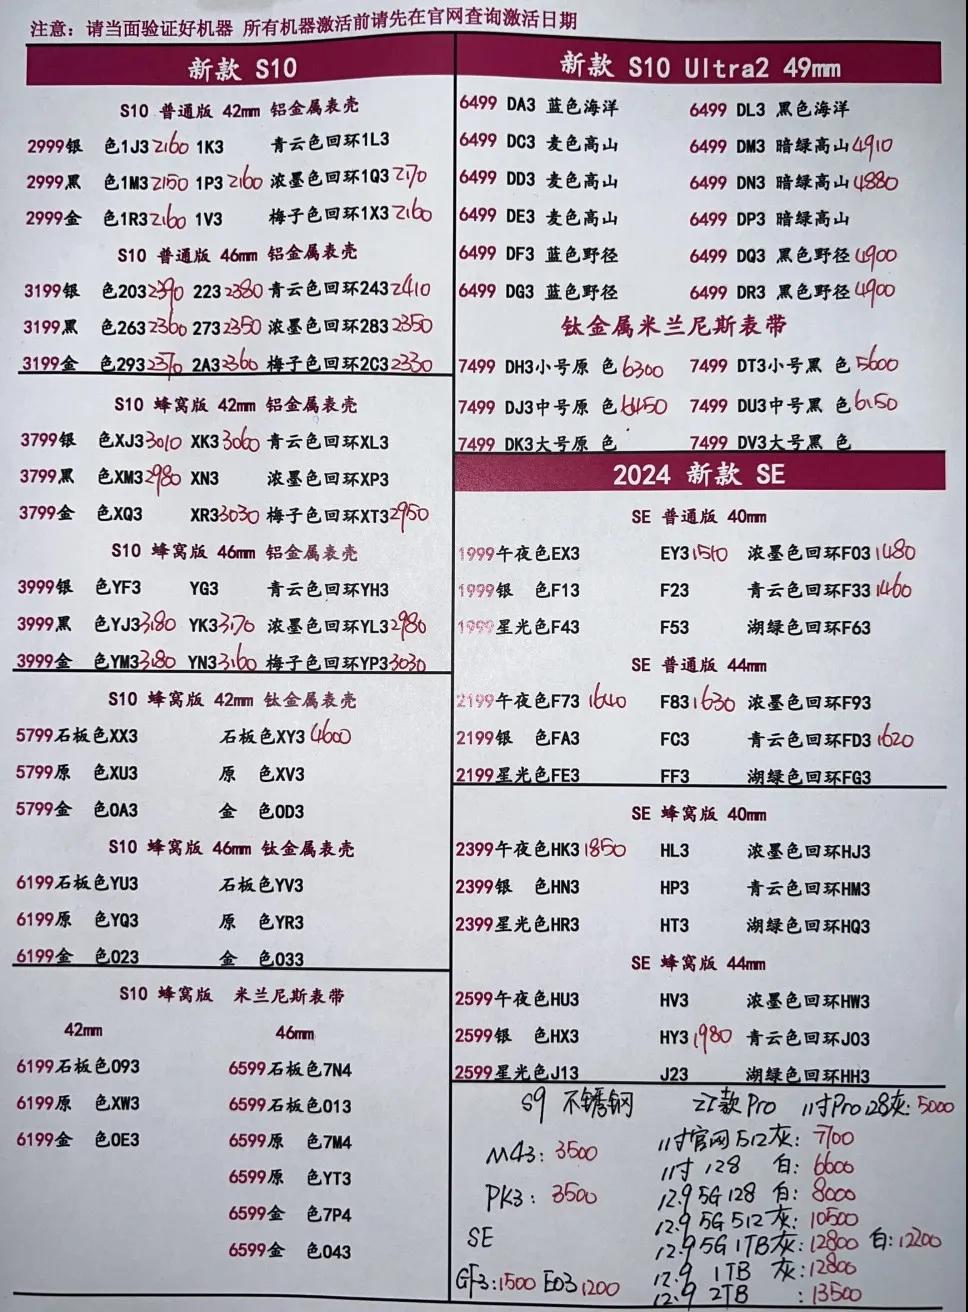 注意：请当面验证好机器 所有机器激活前请先在官网查询激活日期
新款 S10
S10 普通版 42mm 铝金属表壳
2999银 色1J3 2160 1K3 青云色回环1L3
2999黑 色1M3 2150 1P3 2160 浓墨色回环1Q3 2170
2999金 色1R3 2160 1V3 梅子色回环1X3 2160
S10 普通版 46mm 铝金属表壳
3199银 色203 2390 223 2380 青云色回环243 2410
3199黑 色263 2360 273 2350 浓墨色回环283 2350
3199金 色293 2370 2A3 2360 梅子色回环2C3 2330
S10 蜂窝版 42mm 铝金属表壳
3799银 色XJ3 3010 XK3 3060 青云色回环XL3
3799黑 色XM3 2980 XN3 浓墨色回环XP3
3799金 色XQ3 XR3 3030 梅子色回环XT3 2950
S10 蜂窝版 46mm 铝金属表壳
3999银 色YF3 YG3 青云色回环YH3
3999黑 色YJ3 3180 YK3 3170 浓墨色回环YL3 2980
3999金 色YM3 3180 YN3 3160 梅子色回环YP3 3030
S10 蜂窝版 42mm 钛金属表壳
5799石板色XX3 石板色XY3 4600
5799原 色XU3 原 色XV3
5799金 色0A3 金 色0D3
S10 蜂窝版 46mm 钛金属表壳
6199石板色YU3 石板色YV3
6199原 色YQ3 原 色YR3
6199金 色023 金 色033
S10 蜂窝版 米兰尼斯表带
42mm 46mm
6199石板色093 6599石板色7N4
6199原 色XW3 6599石板色013
6199金 色0E3 6599原 色7M4
6599原 色YT3
6599金 色7P4
6599金 色043
新款 S10 Ultra2 49mm
6499 DA3 蓝色海洋 6499 DL3 黑色海洋
6499 DC3 麦色高山 6499 DM3 暗绿高山 4910
6499 DD3 麦色高山 6499 DN3 暗绿高山 4880
6499 DE3 麦色高山 6499 DP3 暗绿高山
6499 DF3 蓝色野径 6499 DQ3 黑色野径 4900
6499 DG3 蓝色野径 6499 DR3 黑色野径 4900
钛金属米兰尼斯表带
7499 DH3小号原 色 6300 7499 DT3小号黑 色 5600
7499 DJ3中号原 色 6450 7499 DU3中号黑 色 6150
7499 DK3大号原 色 7499 DV3大号黑 色
2024 新款 SE
SE 普通版 40mm
1999午夜色EX3 EY3 1510 浓墨色回环F03 1480
1999银 色F13 F23 青云色回环F33 1460
1999星光色F43 F53 湖绿色回环F63
SE 普通版 44mm
2199午夜色F73 1640 F83 1630 浓墨色回环F93
2199银 色FA3 FC3 青云色回环FD3 1620
2199星光色FE3 FF3 湖绿色回环FG3
SE 蜂窝版 40mm
2399午夜色HK3 1850 HL3 浓墨色回环HJ3
2399银 色HN3 HP3 青云色回环HM3
2399星光色HR3 HT3 湖绿色回环HQ3
SE 蜂窝版 44mm
2599午夜色HU3 HV3 浓墨色回环HW3
2599银 色HX3 HY3 1980 青云色回环J03
2599星光色J13 J23 湖绿色回环HH3
S9 不锈钢
M43: 3500
PK3: 3500
SE
GF3: 1500 E03 1200
22款Pro 11寸Pro128灰: 5000
11寸官网512灰: 7700
11寸 128 白: 6600
12.9 5G 128 白: 8000
12.9 5G 512灰: 10500
12.9 5G 1TB灰: 12800 白: 12200
12.9 1TB 灰: 12800
12.9 2TB : 13500